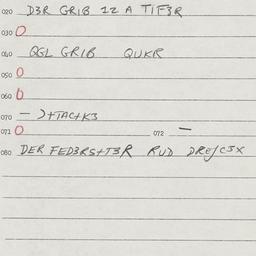 020 D3R GRIB 12 A TIF3R
030 0
040 QGL GRIB QUKR
050 0
060 0
070 – )+TAC+K3
071 0 072 –
080 DER FED3RS+T3R RUD DRE/C3X